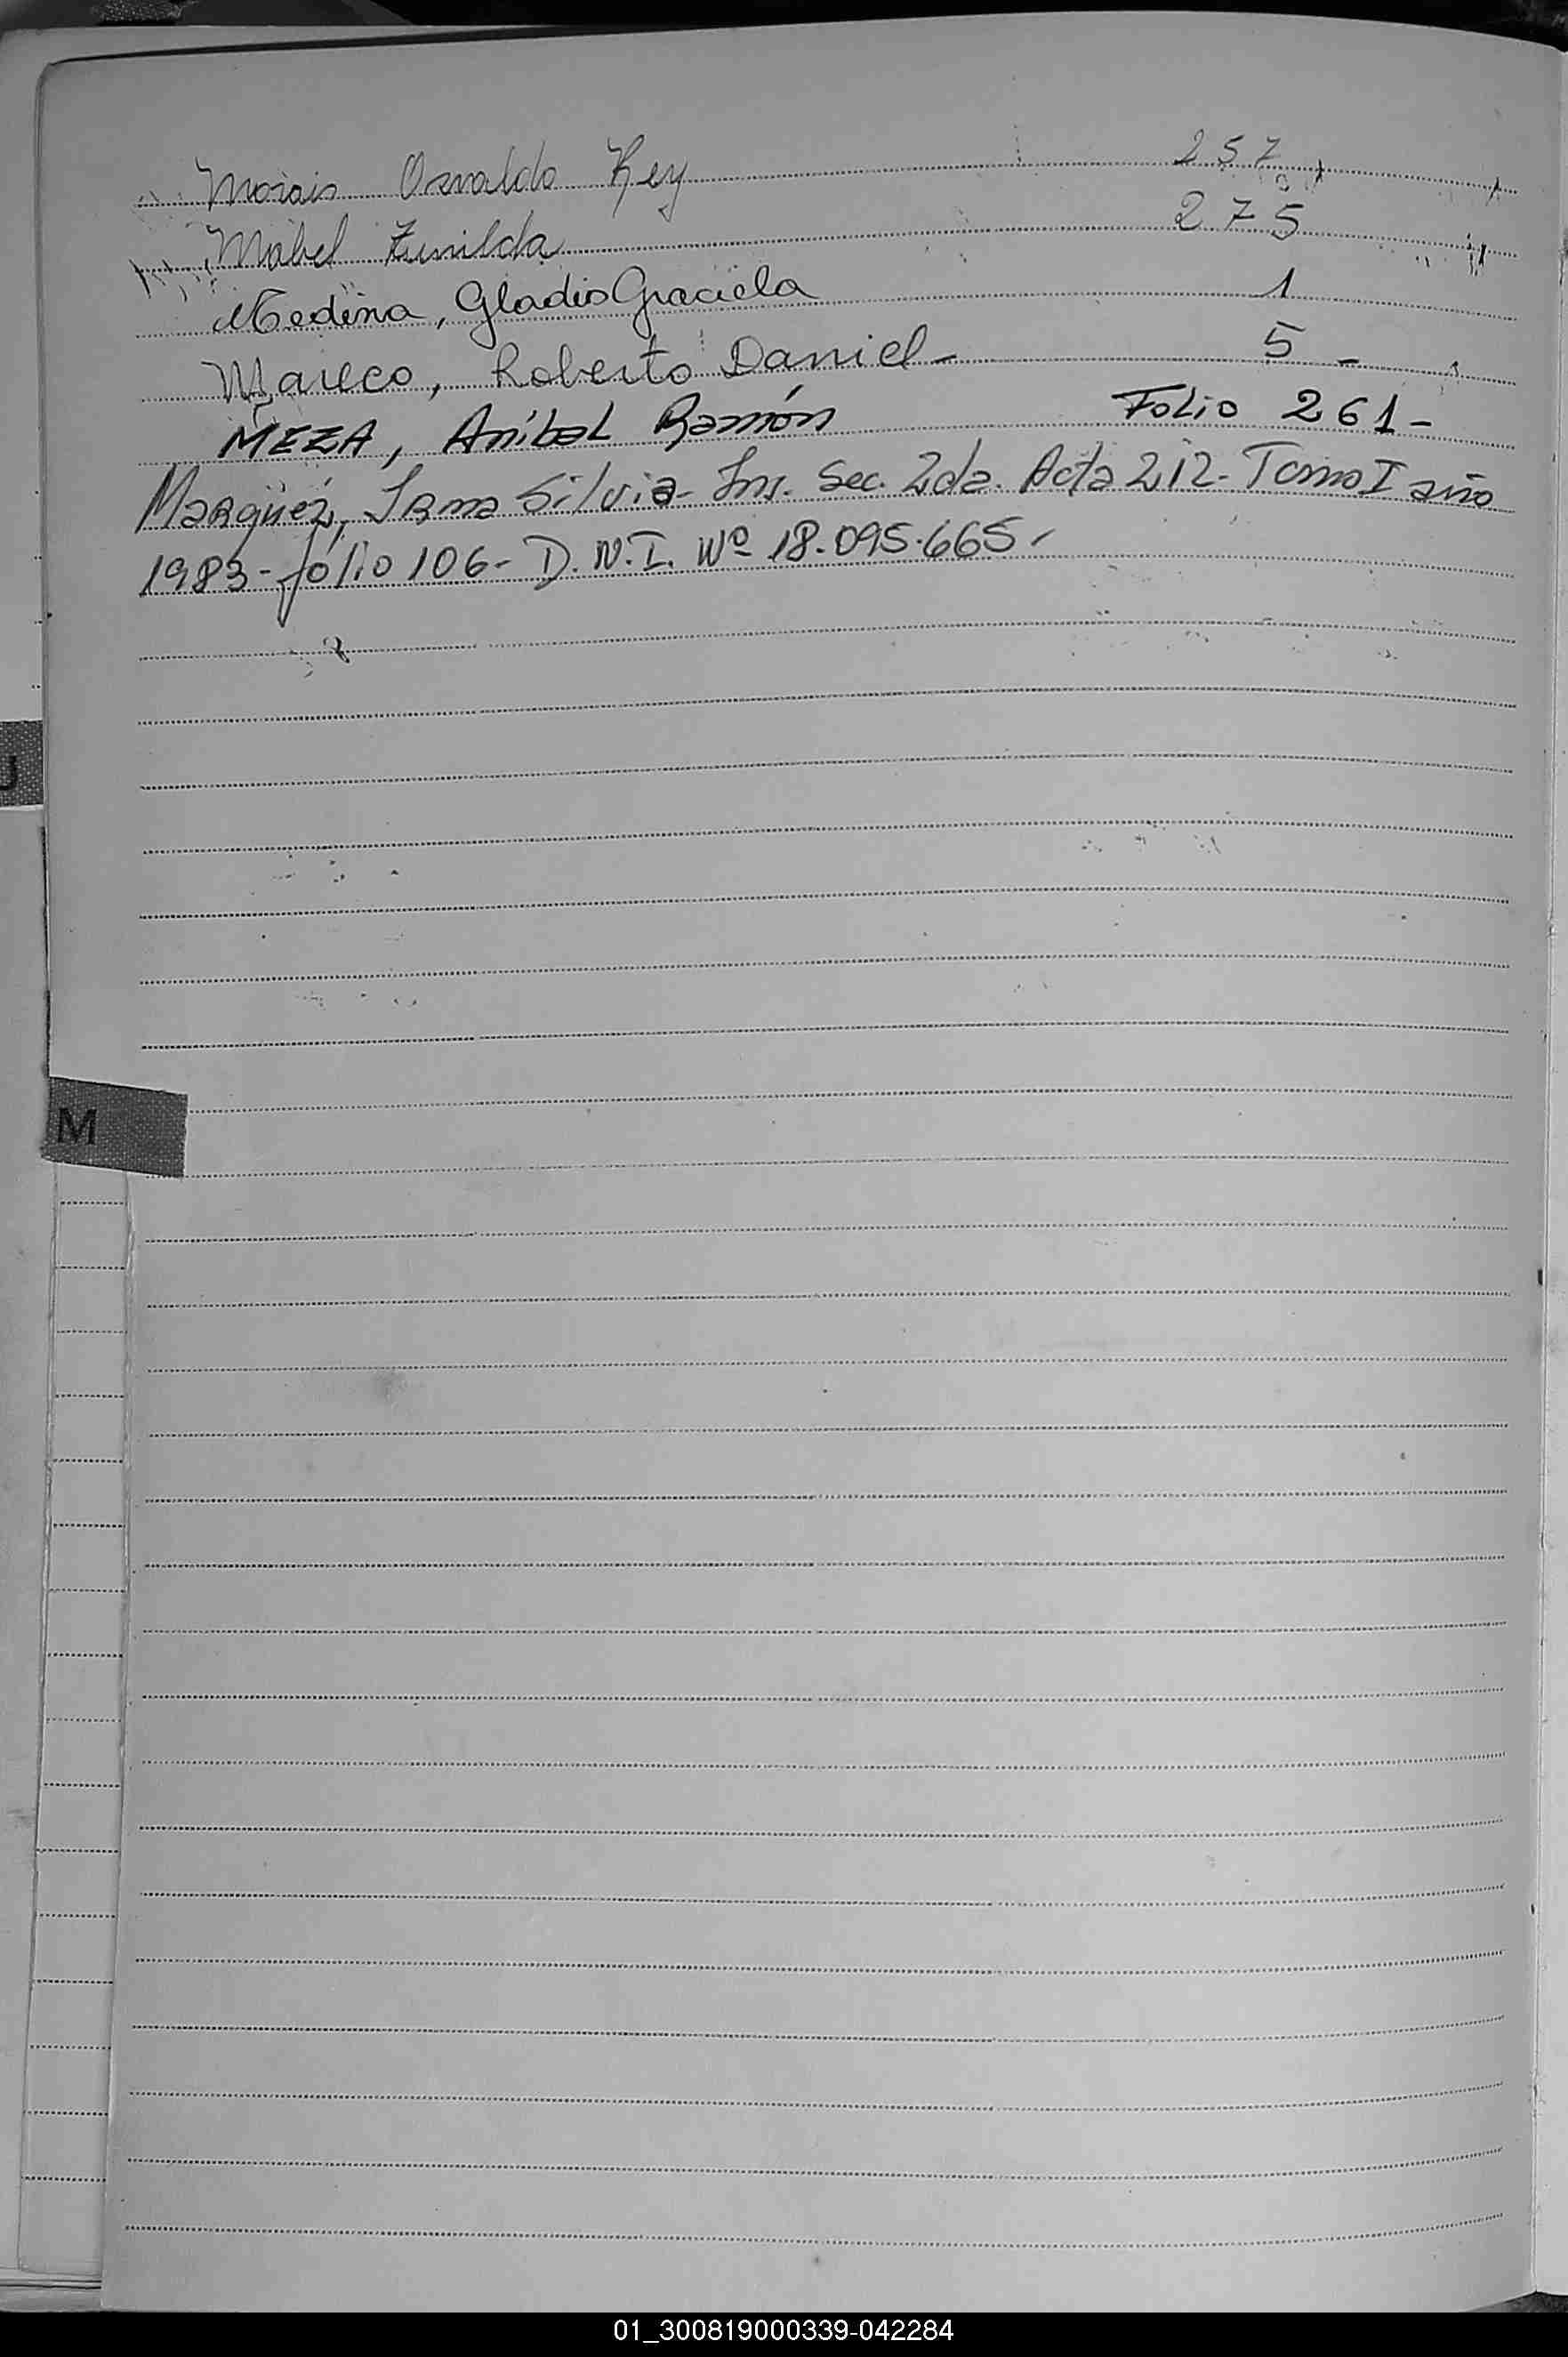 Morais Osvaldo Rey 257
Mabel Zunilda 275
Medina, Gladis Graciela 1
Mareco, Roberto Daniel - 5 -
MEZA, Aníbal Ramón Folio 261 -
Marqüez, Irma Silvia - Ins. Sec. 2da. Acta 212 - Tomo I año
1983 - fólio 106 - D.N.I. Nº 18.095.665 -
J
M
01_300819000339-042284